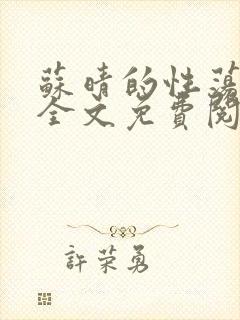 蘇晴的性蕩
全文免費閱
許荣勇